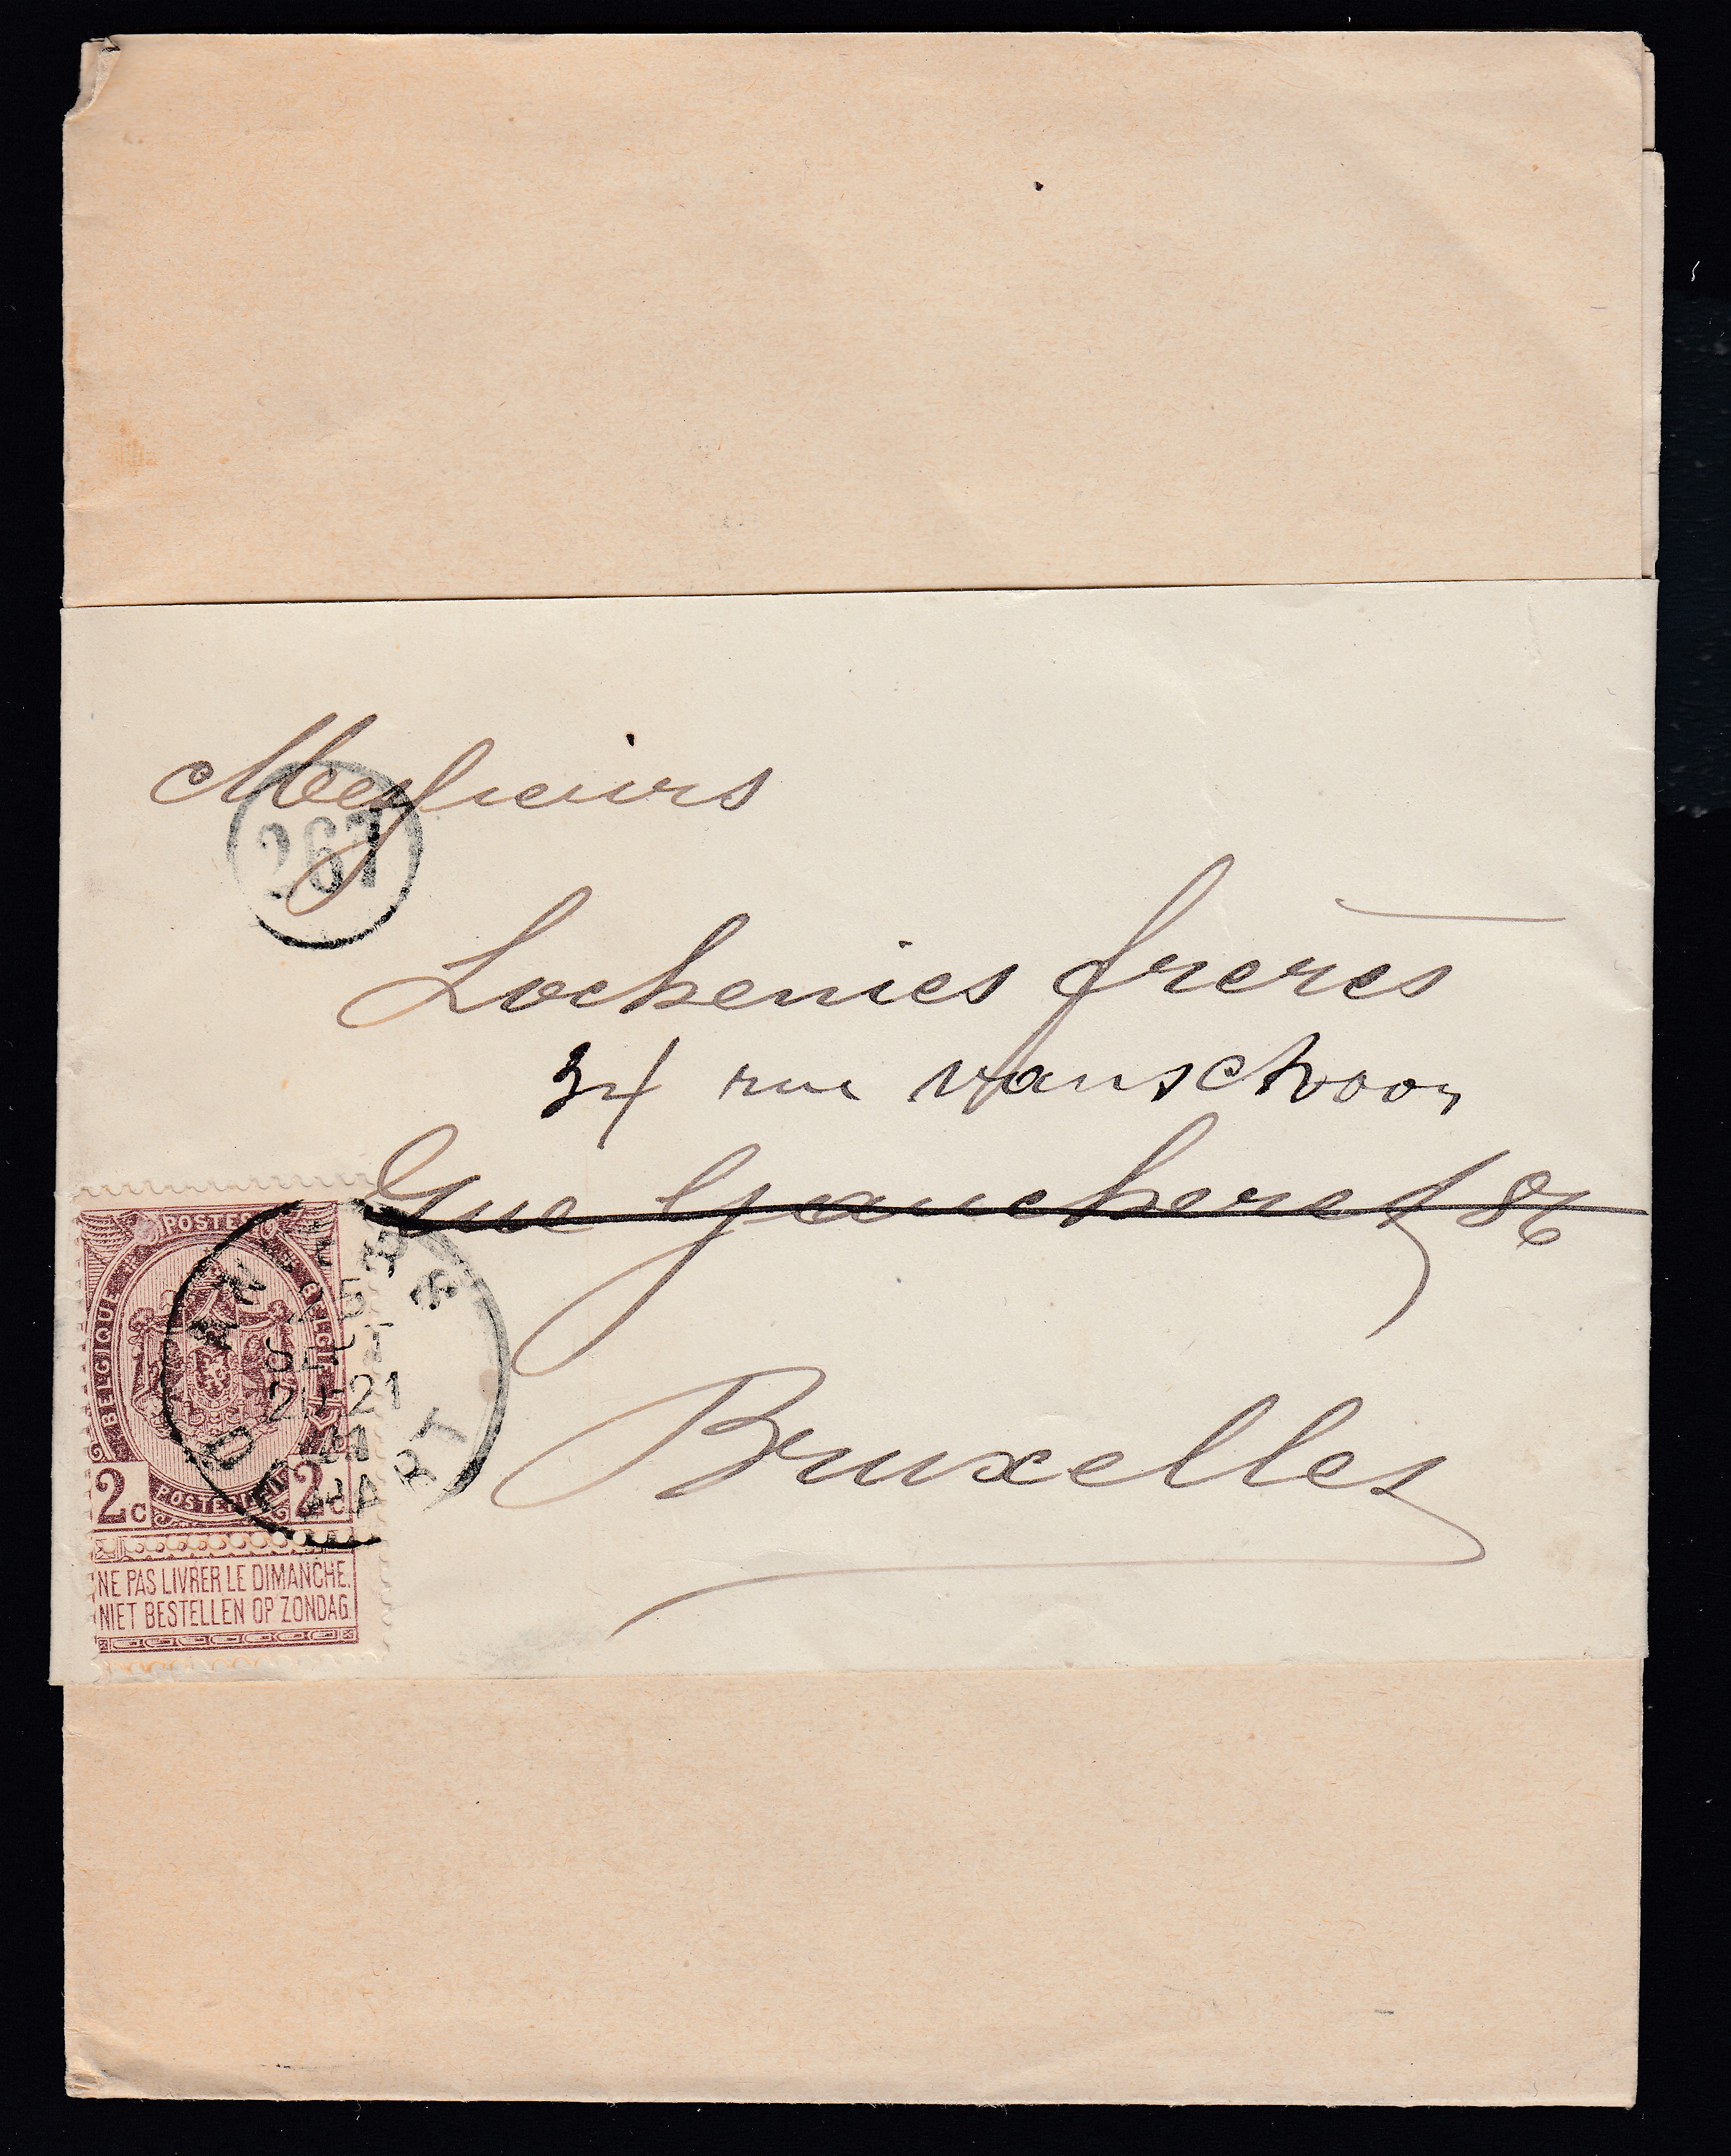 Messieurs
267
Lochenies frères
34 rue Vanschoor
Rue Gaucheret 86
Bruxelles
POSTES
BELGIQUE
BELGIË
POSTERIJEN
2c 2c
NE PAS LIVRER LE DIMANCHE.
NIET BESTELLEN OP ZONDAG.
ANVERS
25
SEPT
20-21
DÉPART